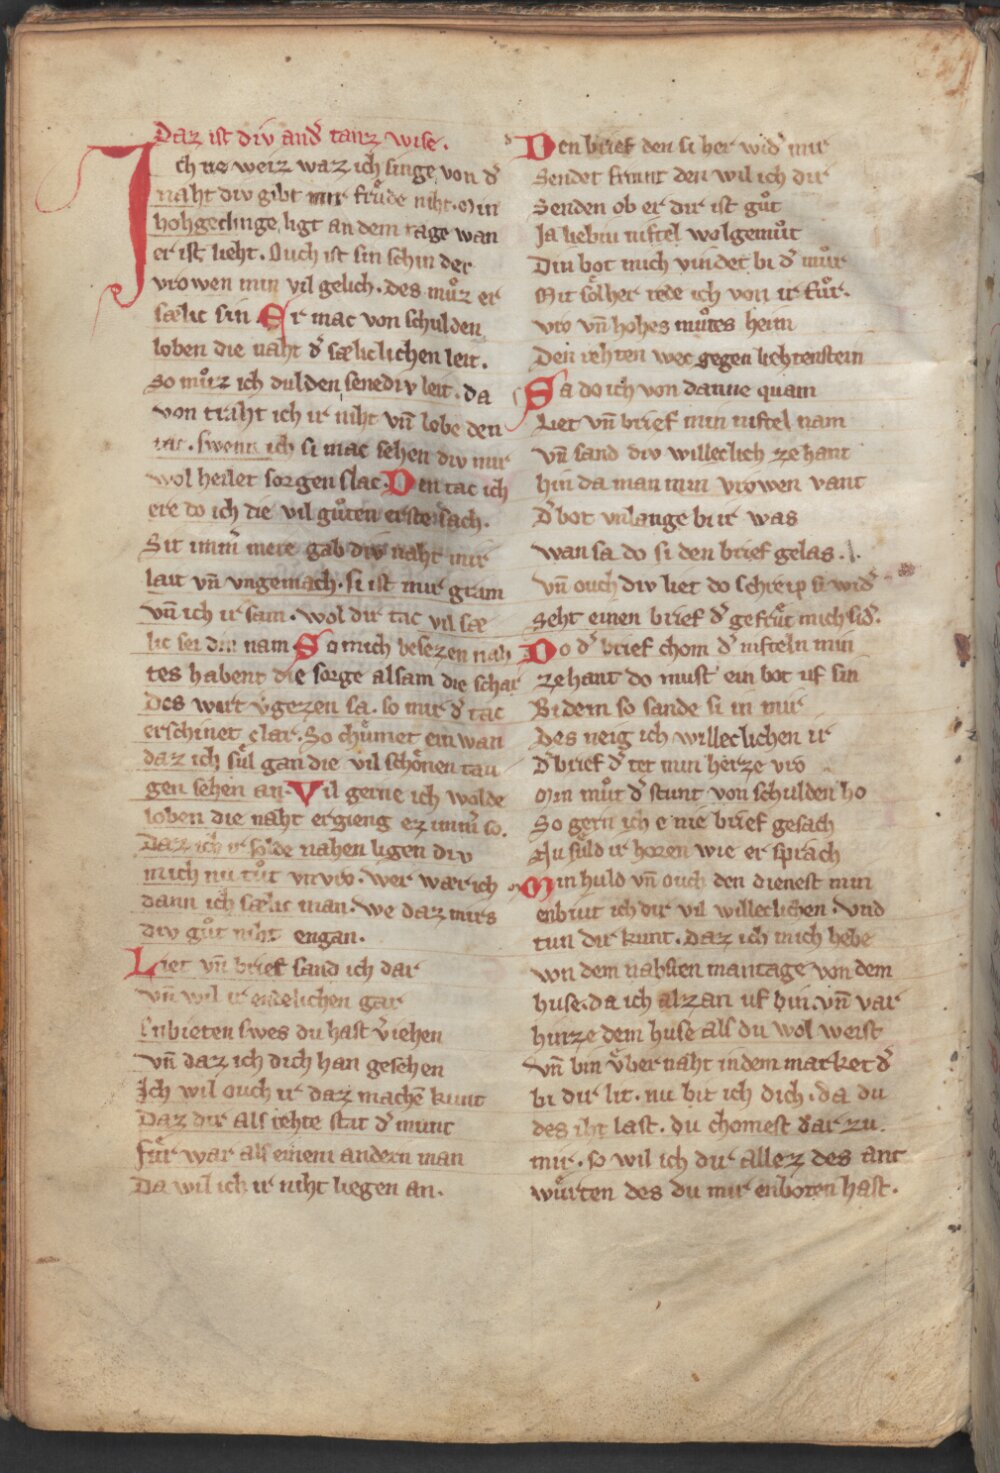 Daz ist div and͛ tanz wise.
Ich ne weiz waz ich singe von d͛
naht div gibt mir frůde niht. Min
hohgedinge ligt an dem tage wan
er ist lieht. Ouch ist sin schin der
vrowen min vil gelich. des můz er
sælic sin. Er mac von schulden
loben die naht d͛ sæliclichen leit.
So můz ich dulden senediv leit. da
von traht ich ir niht vn̄ lobe den
tac. swenn ich si mac sehen div mir
wol heilet sorgen slac. Den tac ich
ere do ich die vil gůten erste sach.
Sit imm̄ mere gab div naht mir
lait vn̄ vngemach. si ist mir gram
vn̄ ich ir sam. wol dir tac vil sæ
lic sei din nam. So mich besezen nah
tes habent die sorge alsam die schar
Des wirt v͛gezen sa. so mir d͛ tac
erschinet clar. So chůmet ein wan
daz ich sůl gan die vil schônen tau
gen sehen an. Vil gerne ich wolde
loben die naht ergieng ez imm̄ so.
Daz ich ir solde nahen ligen div
mich nu tůt vnvro. wer wær ich
dann ich sælic man. we daz mirs
div gůt niht engan.
Liet vn̄ brief sand ich dar
vn̄ wil ir endelichen gar
Enbieten swes du hast v͛iehen
vn̄ daz ich dich han gesehen
Ich wil ouch ir daz mache̅ kunt
Daz dir als rehte stat d͛ munt
fůr war als einem andern man
Da wil ich ir niht liegen an.
Den brief den si her wid͛ mir
Sendet frunt den wil ich dir
Senden ob er dir ist gůt
Ja liebiu niftel wolgemůt
Din bot mich vindet bi d͛ můr
Mit sôlher rede ich von ir fůr.
vro vn̄ hohes můtes heim
Den rehten wec gegen liehtenstein
Sa do ich von danne quam
Liet vn̄ brief min niftel nam
vn̄ sand div willeclich ze hant
hin da man min vrowen vant
d͛ bot vnlange bi ir was
wan sa do si den brief gelas.
vn̄ ouch div liet do schreip si wid͛
Seht einen brief d͛ gefrůt mich sid͛.
Do d͛ brief chom d͛ nifteln min
ze hant do must ein bot uf sin
Bi dem so sande si in mir
Des neig ich willeclichen ir
d͛ brief d͛ tet min herze vro
Min můt d͛ stunt von schulden ho
So gern ich e nie brief gesach
Nu sůld ir horen wie er sprach
Min huld vn̄ ouch den dienest min
enbiut ich dir vil willeclichen. vnd
tun dir kunt. daz ich mich hebe
von dem nahsten mantage von dem
huse. da ich alzan uf bin. vn̄ var
hinze dem huse als du wol weist
vn̄ bin ůber naht in dem market d͛
bi dir lit. nu bit ich dich. da du
des iht last. du chomest dar zu
mir. so wil ich dir allez des ant
wůrten des du mir enboten hast.